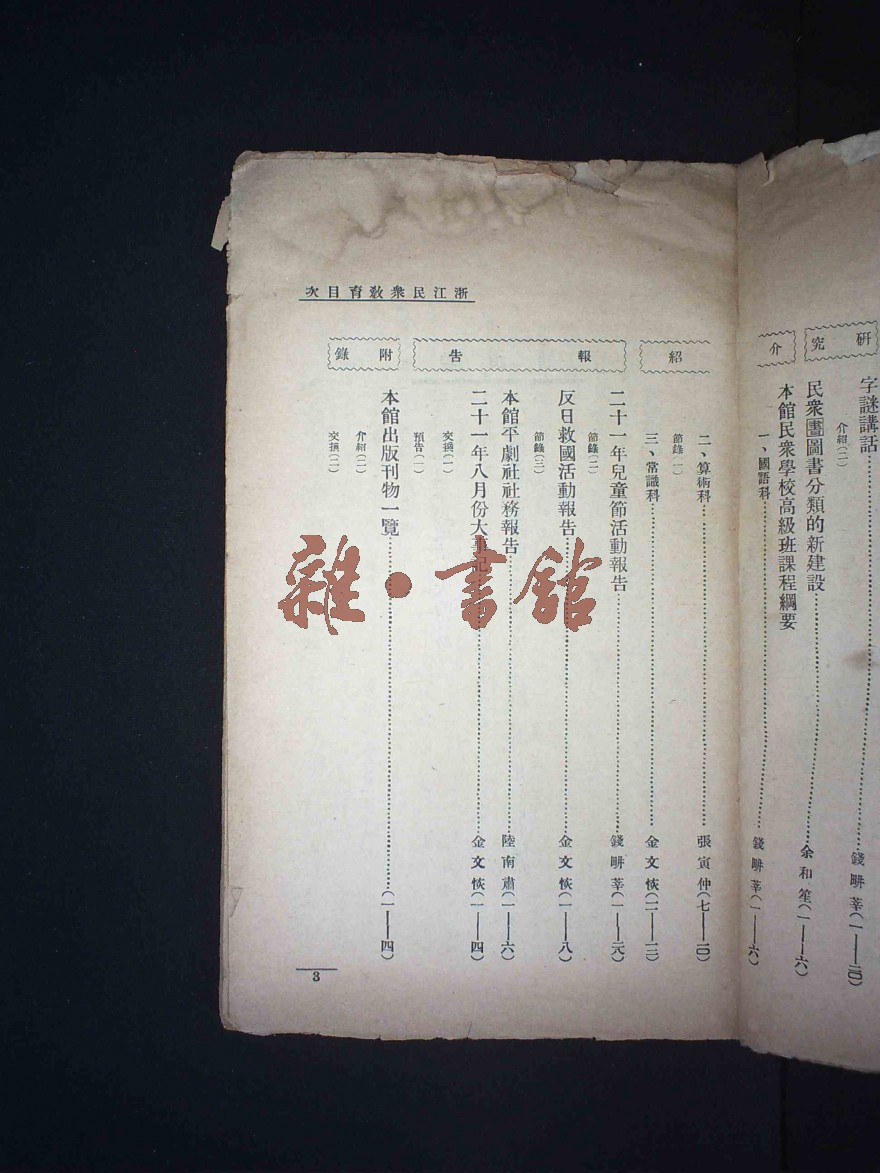 研究
字謎講話……錢畊莘(一——二〇)
介紹(二)
民衆圕圖書分類的新建設……余和笙(一——六)
介
本館民衆學校高級班課程綱要
一、國語科……錢畊莘(一——六)
浙江民衆敎育目次
紹
二、算術科……張寅仲(七——一〇)
節錄(一)
三、常識科……金文恢(一一——一二)
報告
二十一年兒童節活動報告……錢畊莘(一——一六)
節錄(二)
反日救國活動報告……金文恢(一——八)
節錄(三)
本館平劇社社務報告……陸南肅(一——六)
二十一年八月份大事記……金文恢(一——四)
交換(一)
預告(一)
附錄
本館出版刊物一覽……(一——四)
介紹(二)
交換(二)
3
雜·書館